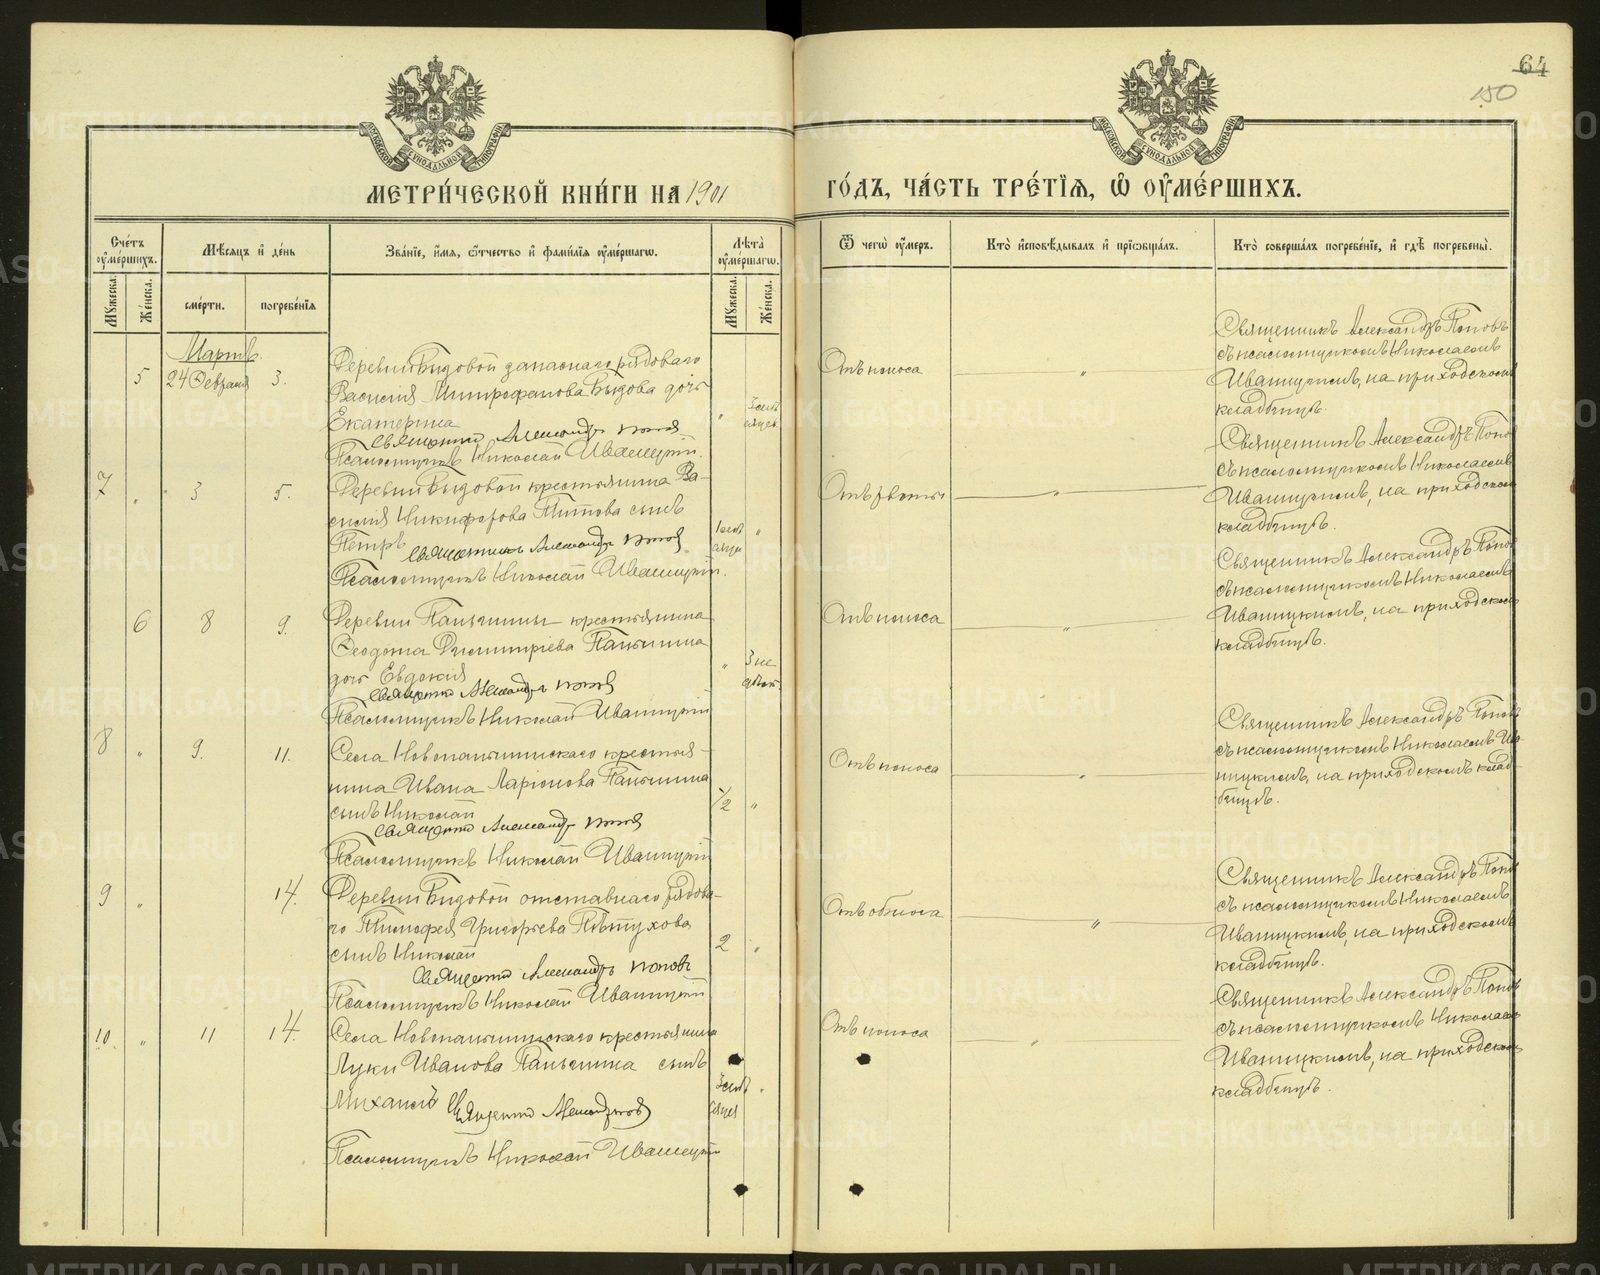 64
150
МОСКОВСКОЙ СѴНОДАЛЬНОЙ ТИПОГРАФІИ
МОСКОВСКОЙ СѴНОДАЛЬНОЙ ТИПОГРАФІИ
МЕТРИ́ЧЕСКОЙ КНИ́ГИ НА 1901
ГО́ДЪ, ЧА́СТЬ ТРЕ́ТІѦ, Ѡ ОУМЕ́РШИХЪ.
Сче́тъ оумершихъ.
Мѣсяцъ и день
Зва́ніе, имя, ѿчество и фамилія оумершагѡ.
Лѣта оумершагѡ.
Ѿ чегѡ оумеръ.
Кто исповѣдывалъ и пріобщалъ.
Кто совершалъ погребеніе, и гдѣ погребены.
Мужеска.
Женска.
смерти.
погребенія
Мужеска.
Женска.
Мартъ.
5 24 Февраля 3.
Деревни Быдовой запаснаго рядоваго
Василія Митрофанова Быдова дочь
Екатерина
" 3 мѣсяцев.
Священникъ Александръ Поповъ
Псаломщикъ Николай Иваницкій.
Отъ поноса
"
Священникъ Александръ Поповъ
съ псаломщикомъ Николаемъ
Иваницкимъ, на приходскомъ
кладбищѣ.
7 " 3 5.
Деревни Быдовой крестьянина Ва-
силія Никифорова Титова сынъ
Петръ
1 мѣсяца "
Священникъ Александръ Поповъ
Псаломщикъ Николай Иваницкій.
"
Священникъ Александръ Попо
съ псаломщикомъ Николаемъ
Иваницкимъ, на приходском
кладбищѣ.
6 8 9.
Деревни Паньшины крестьянина
Ѳеодота Димитріева Паньшина
дочь Евдокія
" 3 недѣл.
Священникъ Александръ Поповъ
Псаломщикъ Николай Иваницкій
Отъ поноса
"
Священникъ Александръ Попо
съ псаломщикомъ Николаемъ
Иваницкимъ, на приходском
кладбищѣ.
8 " 9. 11.
Села Новопаньшинскаго крестья-
нина Ивана Ларіонова Паньшина
сынъ Николай
1/2 "
Священникъ Александръ Поповъ
Псаломщикъ Николай Иваницкій
Отъ поноса
"
Священникъ Александръ Попов
съ псаломщикомъ Николаемъ Ива
ницкимъ, на приходскомъ клад-
бищѣ.
9 " 14.
Деревни Быдовой отставнаго рядова-
го Тимофея Григорьева Пѣтухова
сынъ Николай
2 "
Священникъ Александръ Поповъ
Псаломщикъ Николай Иваницкій
"
Священникъ Александръ Попо
съ псаломщикомъ Николаемъ
Иваницкимъ, на приходскомъ
кладбищѣ.
10. " 11 14.
Села Новопаньшинскаго крестьянина
Луки Иванова Паньшина сынъ
Михаилъ
3 мѣсяца "
Священникъ Александръ Поповъ
Псаломщикъ Николай Иваницкій
Отъ поноса
"
Священникъ Александръ Попов
съ псаломщикомъ Николаем
Иваницкимъ, на приходском
кладбищѣ.
METRIKI.GASO-URAL.RU